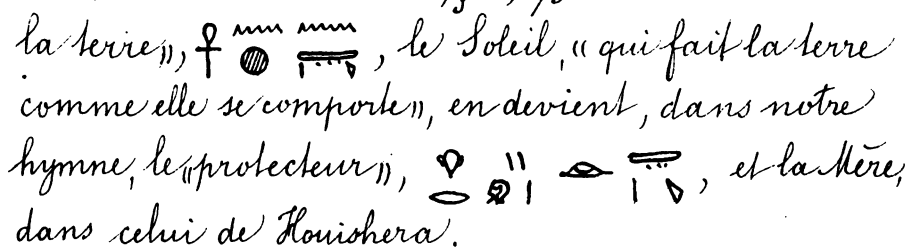 la terre», 𓋹𓈖𓐍𓈖𓇾, le Soleil, « qui fait la terre
comme elle se comporte», en devient, dans notre
hymne, le «protecteur», et la Mère,
dans celui de Houishera.